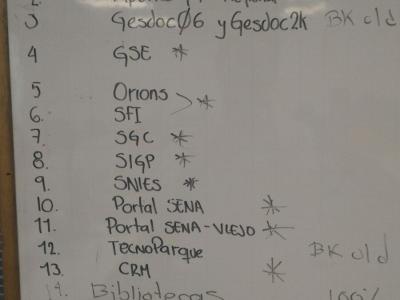 3 Gesdoc06 y Gesdoc2k BK old
4 GSE *
5 Orions *
6. SFI
7. SGC *
8. SIGP *
9. SNIES *
10. Portal SENA *
11. Portal SENA-VIEJO *
12. TECNOPARQUE BK old
13. CRM *
14. Bibliotecas 100%